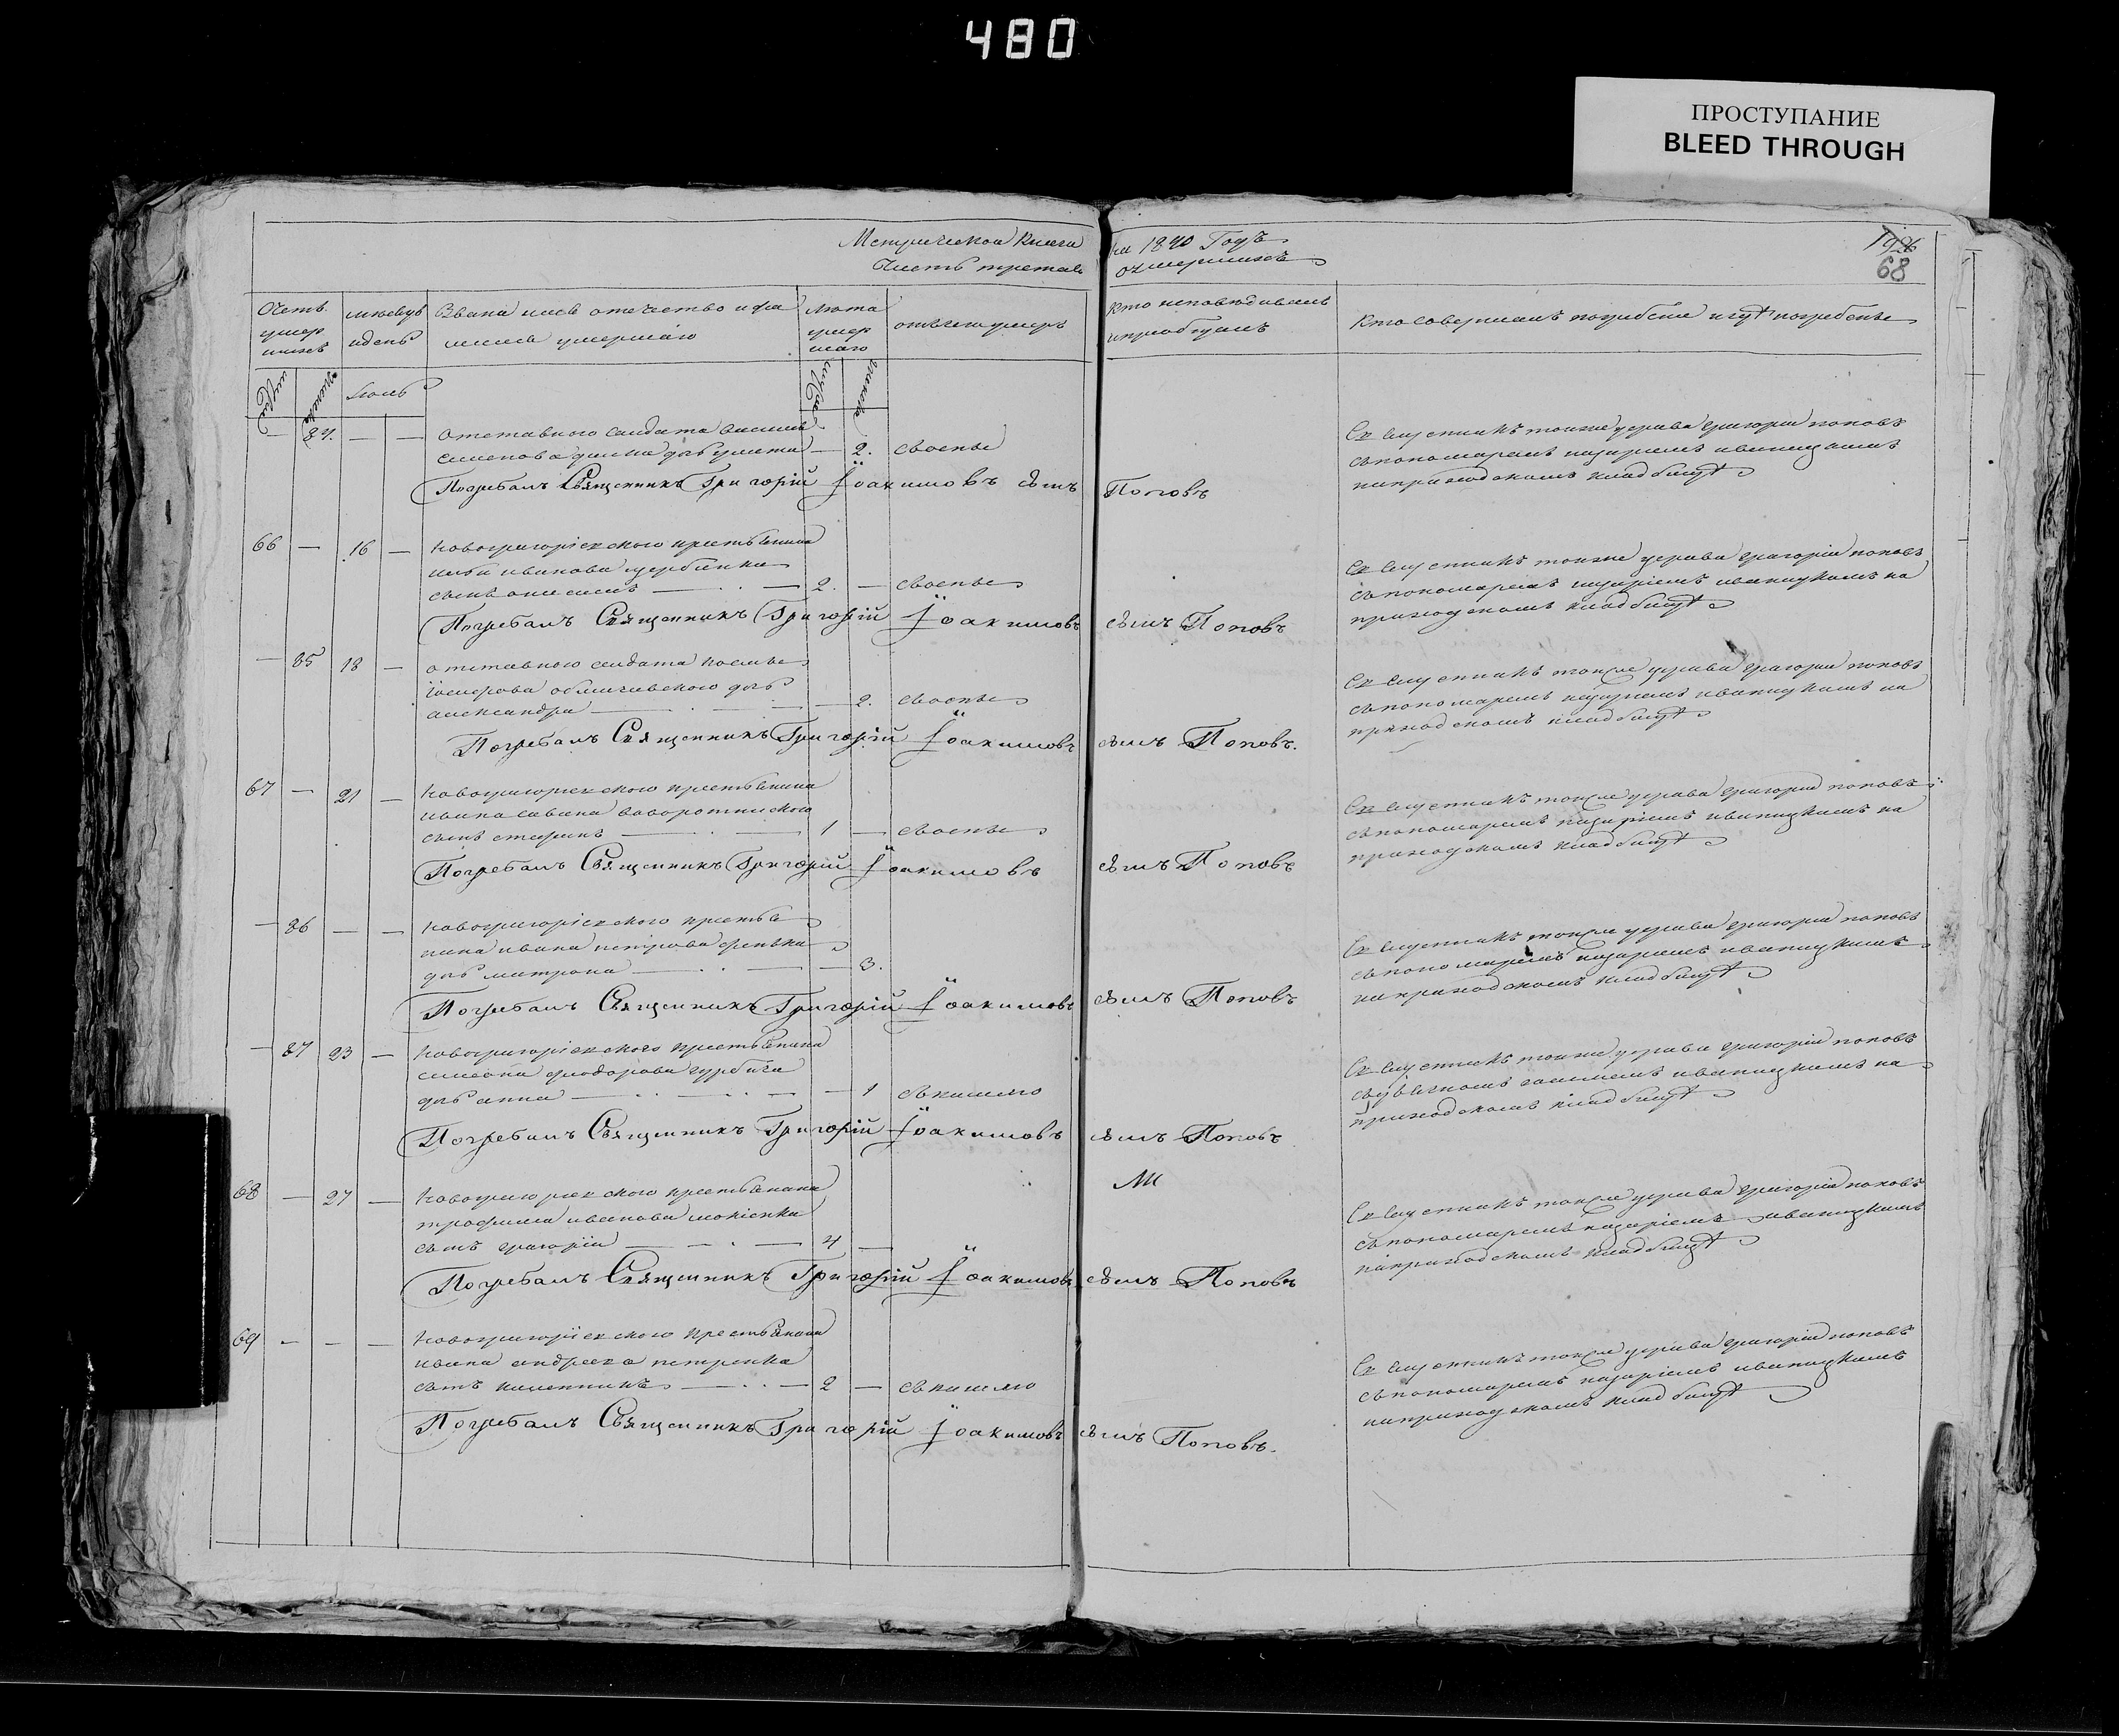 480
ПРОСТУПАНИЕ
BLEED THROUGH
Метрическая Книга на 1840 Годъ
Часть третья о умершихъ
68
Счетъ умершихъ
мужеска
женска
месецъ и день
Июль
Званiе имя отечество и фамилiя умершаго
Лета умершаго
мужеска
женска
отъ чего умеръ
Кто исповедивалъ и приобщалъ
Кто совершалъ погребенiе и где погребены
— 84. — —
отставного салдата василiя
семенова дочь
— 2. своспы
Священникъ тоиже церкви григорiй поповъ
съ пономаремъ назарiемъ иваницкимъ
на приходскомъ кладбище
Погребалъ Священникъ Григорiй Iоакимовъ сынъ Поповъ
66 — 16 —
новогригорiевского крестьянина
ильи иванова щербенка
сынъ анисимъ — 2. — своспы
Священникъ тоиже церкви григорiй поповъ
съ пономаремъ назарiемъ иваницкимъ на
приходскомъ кладбище
Погребалъ Священникъ Григорiй Iоакимовъ сынъ Поповъ
— 85 18 —
отставного салдата
дочь
александра — 2. своспы
Священникъ тоиже церкви григорiй поповъ
съ пономаремъ назарiемъ иваницкимъ на
приходскомъ кладбище
Погребалъ Священникъ Григорiй Iоакимовъ сынъ Поповъ.
67 — 21 —
новогригорiевского крестьянина
ивана савина
сынъ стефанъ — 1 — своспы
Священникъ тоиже церкви григорiй поповъ
съ пономаремъ назарiемъ иваницкимъ на
приходскомъ кладбище
Погребалъ Священникъ Григорiй Iоакимовъ сынъ Поповъ
— 86 — —
новогригорiевского крестья
нина ивана петрова
дочь матрона — 3.
Священникъ тоиже церкви григорiй поповъ
съ пономаремъ назарiемъ иваницкимъ
на приходскомъ кладбище
Погребалъ Священникъ Григорiй Iоакимовъ сынъ Поповъ
— 87 23 —
новогригорiевского крестьянина
симеона феодорова
дочь анна — 1 съ кашлю
Священникъ тоиже церкви григорiй поповъ
иваницкимъ на
приходскомъ кладбище
Погребалъ Священникъ Григорiй Iоакимовъ сынъ Поповъ
68 — 27 —
новогригорiевского крестьянина
трофима иванова
сынъ григорiй — 4 —
Священникъ тоиже церкви григорiй поповъ
съ пономаремъ назарiемъ иваницкимъ
на приходскомъ кладбище
Погребалъ Священникъ Григорiй Iоакимовъ сынъ Поповъ
69 — — —
новогригорiевского крестьянина
ивана андреева петренка
сынъ — 2 — съ кашлю
Священникъ тоиже церкви григорiй поповъ
съ пономаремъ назарiемъ иваницкимъ
на приходскомъ кладбище
Погребалъ Священникъ Григорiй Iоакимовъ сынъ Поповъ.